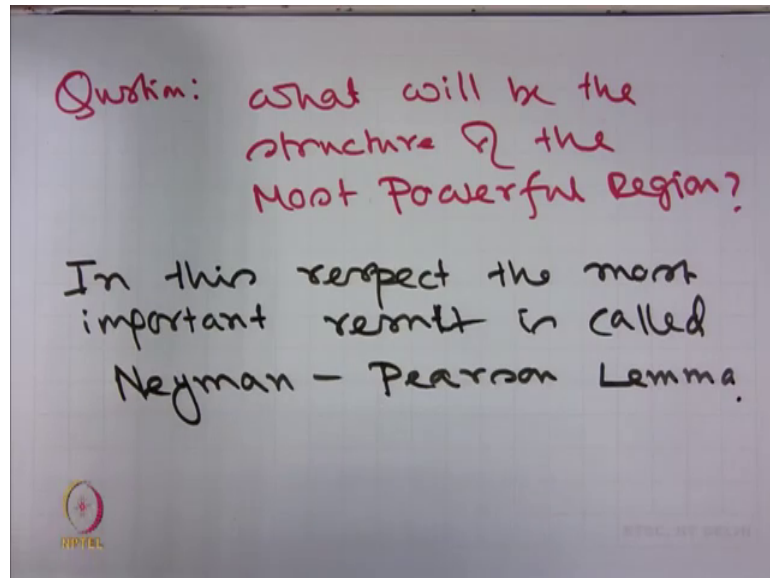 Question: What will be the
structure of the
Most Powerful Region?
In this respect the most
important result is called
Neyman - Pearson Lemma.
NPTEL
ETSC, IIT DELHI